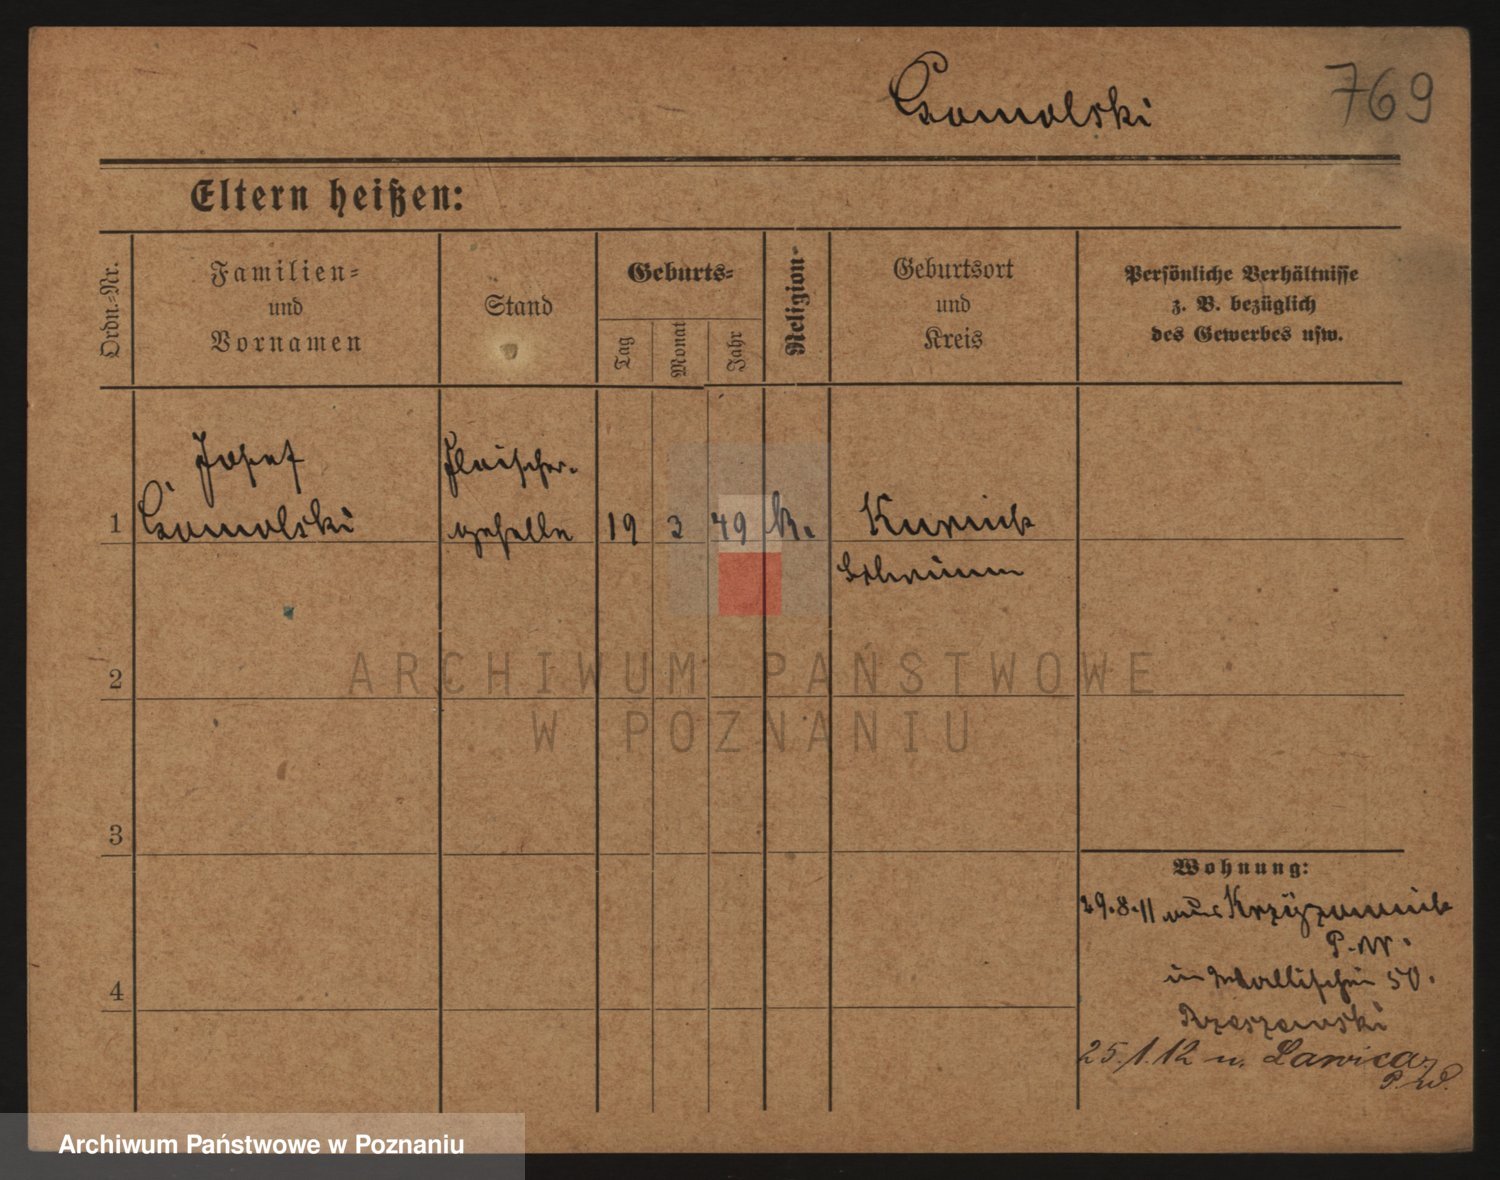 Gomolski
769
Eltern heißen:
Ordn.-Nr.
Familien-
und
Vornamen
Stand
Geburts-
Tag
Monat
Jahr
Religion
Geburtsort
und
Kreis
Persönliche Verhältnisse
z. B. bezüglich
des Gewerbes usw.
Josef
Gomolski
Fleischer-
geselle
1
19
3
49
K.
Kurnik
Schrimm
2
ARCHIWUM PAŃSTWOWE
W POZNANIU
3
Wohnung:
29.8.11 aus
P.W.
in Wallischei 50.
Rzeszewski
4
25.1.12 n. Lawica,
P.W.
Archiwum Państwowe w Poznaniu